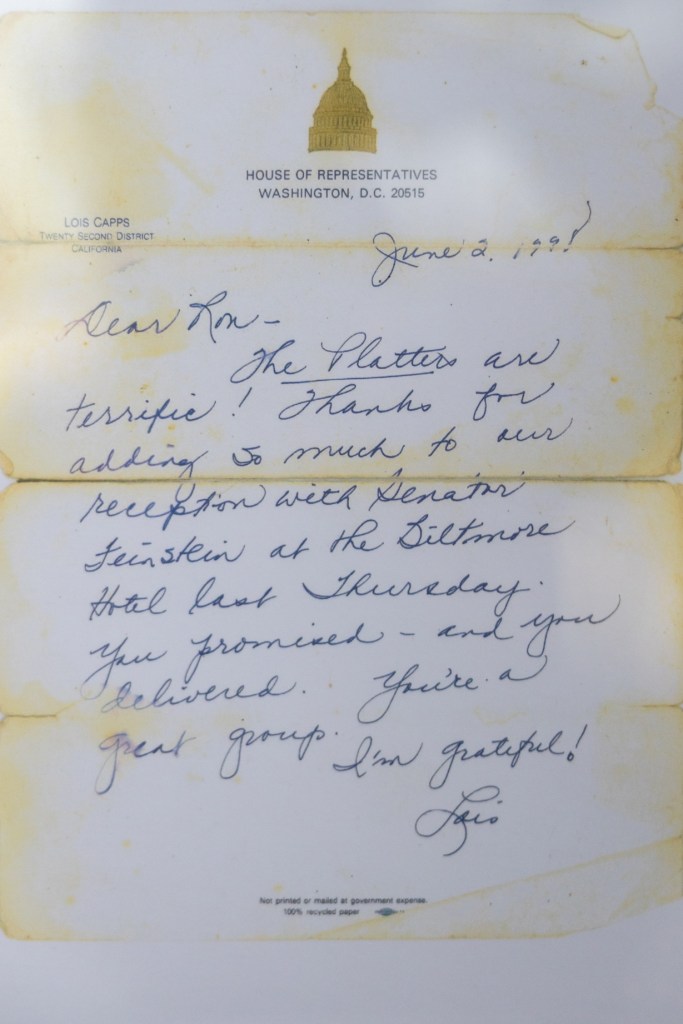 HOUSE OF REPRESENTATIVES
WASHINGTON, D.C. 20515
LOIS CAPPS
TWENTY SECOND DISTRICT
CALIFORNIA
June 2,
Dear Ron -
The Platters are
terrific! Thanks for
adding so much to our
reception with Senator
Feinstein at the Biltmore
Hotel last Thursday.
You promised - and you
delivered. You're a
great group.
I'm grateful!
Lois
Not printed or mailed at government expense.
100% recycled paper